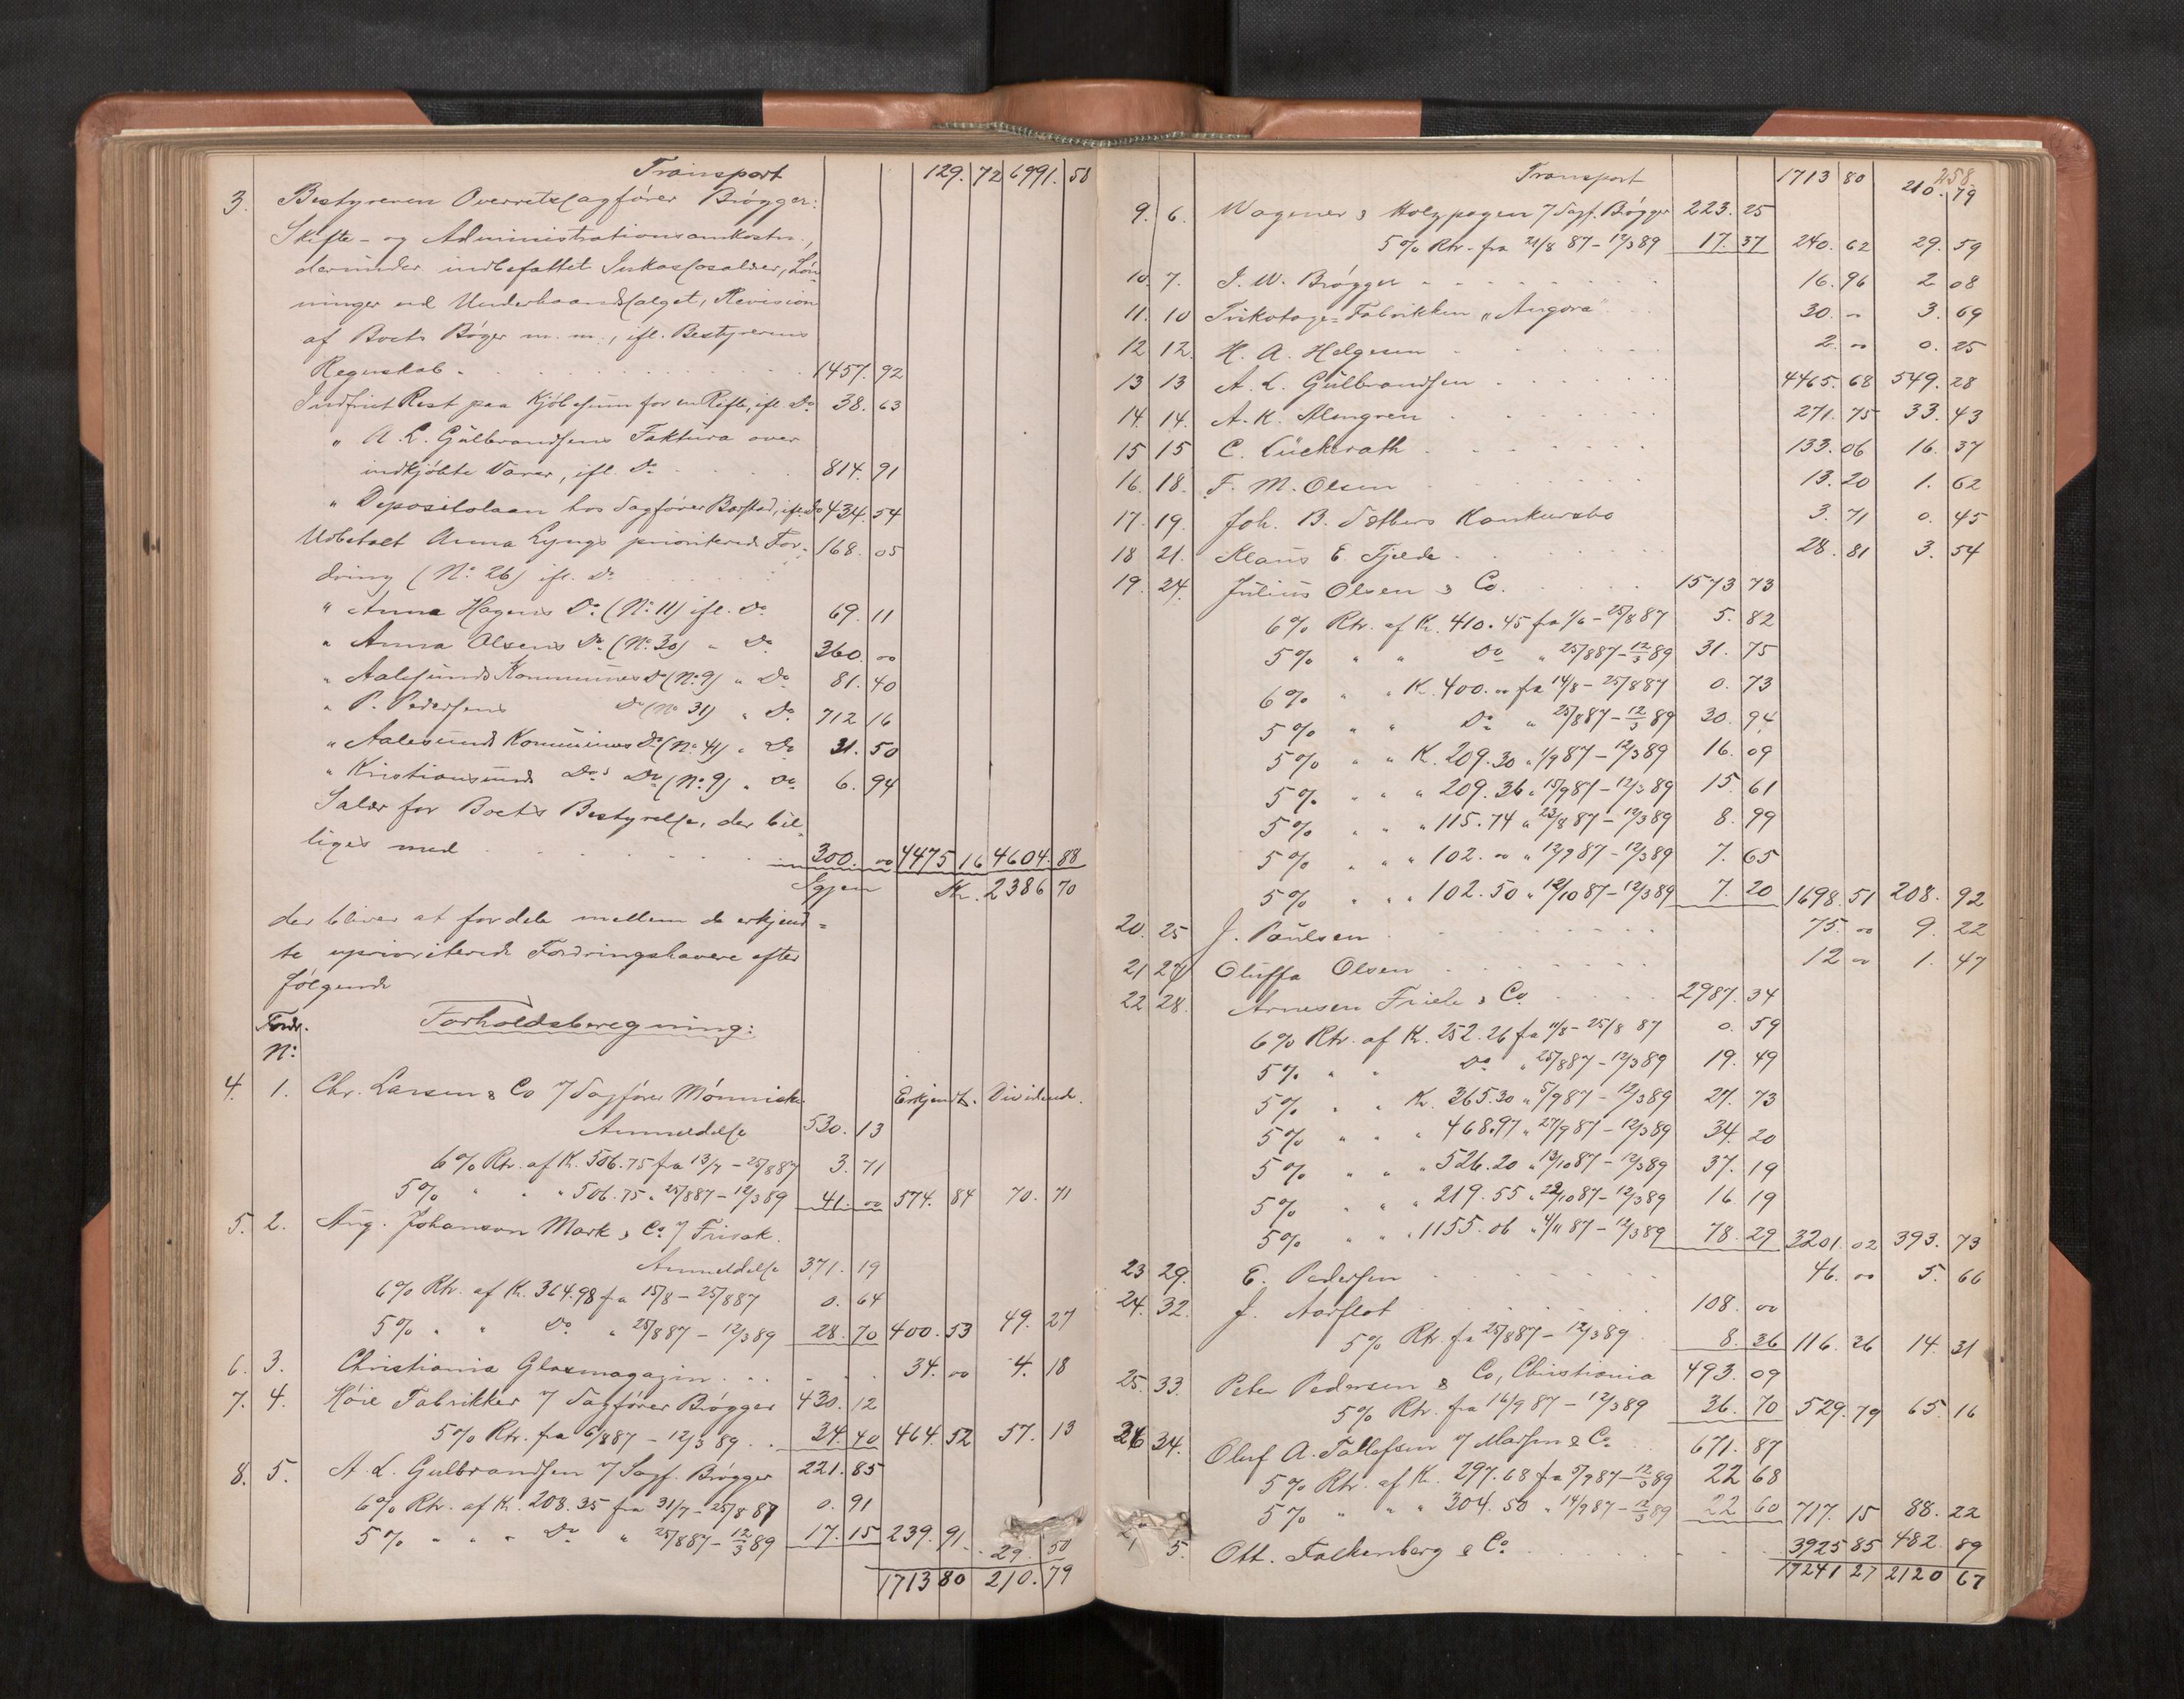 Transport 129. 72 6991. 58
3. Bestyreren Overretssagfører Brøgger:
Skifte- og Administrationsomkostn.,
derunder indbefattet Inkassosalær, Løn-
ninger ved Underhaandssalget, Revision
af Boets Bøger m. m., ifl. Bestyrerens
Regnskab . 1457. 92
Indfriet Rest paa Kjøbesum for en Rifle, ifl. Do 38. 63
" A. L. Gülbrandsens Faktura over
indkjøbte Varer, ifl. Do 814. 91
" Depositolaan hos Sagfører Barstad, ifl. Do 434. 54
Udbetalt Anna Lyngs prioriterede For- 168. 05
dring (No 26) ifl. Do
" Anna Hagens Do (No 11) ifl. Do 69. 11
" Anna Olsens Do (No 30) " Do 360. 00
" Aalesunds Kommunes Do (No 9) " Do 81. 40
" P. Pedersens Do (No 31) " Do 712 16
" Aalesund Kommunes Do (No 41) " Do 31. 50
" Kristiansunds Dos Do (No 9) " Do 6. 94
Salær for Boets Bestyrelse, der bil-
liges med 300. 00 4475 16 4604. 88
Igjen Kr. 2386 70
der bliver at fordele mellem de erkjend-
te uprioriterede Fordringshavere efter
følgende
Fordr. No Forholdsberegning:
4. 1. Chr. Larsen & Co v/ Sagfører Mønniche Erkjendt. Dividende.
Anmeldelse 530. 13
6% Rtr. af Kr. 506.75 fra 13/7 - 25/8 87 3. 71
5% " " " 506.75 " 25/8 87 - 12/3 89 41. 00 574. 84 70. 71
5. 2. Aug. Johanson Mark & Co v/ Frisak.
Anmeldelse 371. 19
6% Rtr. af Kr. 364.98 fra 15/8 - 25/8 87 0. 64
5% " " Do " 25/8 87 - 12/3 89 28. 70 400. 53 49. 27
6. 3. Christiania Glasmagazin . . . 34. 00 4. 18
7. 4. Høie Fabrikker v/ Sagfører Brøgger 430. 12
5% Rtr. fra 6/8 87 - 12/3 89 . . 34. 40 464. 52 57. 13
8. 5. A. L. Gulbrandsen v/ Sagf. Brøgger 221. 85
6% Rtr. af Kr. 208.35 fra 31/7 - 25/8 87 0. 91
5% " " " Do " 25/8 87 - 12/3 89 17. 15 239. 91 29. 50
1713 80 210. 79
258.
Transport 1713 80 210. 79
9. 6. Wagener & Holzpagen v/ Sagf. Brøgger 223. 25
5% Rtr. fra 21/8 87 - 12/3 89 17. 37 240. 62 29. 59
10. 7. I. W. Brøgger 16. 96 2 08
11. 10 Trikotage-Fabrikken "Angora" 30. 00 3. 69
12 12. H. A. Helgesen 2. 00 0. 25
13 13 A. L. Gülbrandsen 4465. 68 549. 28
14. 14. A. K. Almgren 271. 75 33. 43
15 15 C. Lückerath 133. 06 16. 37
16. 18. F. M. Olsen 13. 20 1. 62
17. 19. Joh. B. Sæthers Konkursbo 3. 71 0. 45
18 21. Klaus E. Fjelde 28. 81 3. 54
19. 24. Julius Olsen & Co. 1573 73
6% Rtr. af Kr. 410.45 fra 1/6 - 25/8 87 5. 82
5% " " Do " 25/8 87 - 12/3 89 31. 75
6% " " K. 400.00 fra 14/8 - 25/8 87 0. 73
5% " " Do " 25/8 87 - 12/3 89 30. 94
5% " " K. 209.30 " 1/9 87 - 12/3 89 16. 09
5% " " " 209.36 " 15/9 87 - 12/3 89 15. 61
5% " " " 115.74 " 23/8 87 - 12/3 89 8. 99
5% " " " 102. 00 " 12/9 87 - 12/3 89 7. 65
5% " " " 102.50 " 12/10 87 - 12/3 89 7. 20 1698. 51 208. 92
20. 25 J. Paulsen 75. 00 9. 22
21 27 Oluffa Olsen 12 00 1. 47
22 28. Arnesen Friele & Co 2987. 34
6% Rtr. af Kr. 252.26 fra 11/8 - 25/8 87 0. 59
5% " " Do " 25/8 87 - 12/3 89 19. 49
5% " " K. 365.30 " 5/9 87 - 12/3 89 27. 73
5% " " " 468.97 " 27/9 87 - 12/3 89 34. 20
5% " " " 526.20 " 13/10 87 - 12/3 89 37. 19
5% " " " 219.55 " 22/10 87 - 12/3 89 16 19
5% " " " 1155.06 " 4/11 87 - 12/3 89 78. 29 3201. 02 393. 73
23 29. E. Pedersen 46. 00 5. 66
24. 32. J. Aarflot 108. 00
5% Rtr. fra 25/8 87 - 12/3 89 8. 26 116. 26 14. 31
25. 33. Peter Pedersen & Co, Christiania 493. 09
5% Rtr. fra 16/9 87 - 12/3 89 36. 70 529. 79 65. 16
26 34. Oluf A. Tallefsen v/ Madsen & Co. 671. 87
5% Rtr. af K. 297.68 fra 5/9 87 - 12/3 89 22 68
5% " " " 304.50 " 14/9 87 - 12/3 89 22 60 717. 15 88. 22
5. Ott. Falkenberg & Co 3925 85 482. 89
17241 27 2120 67